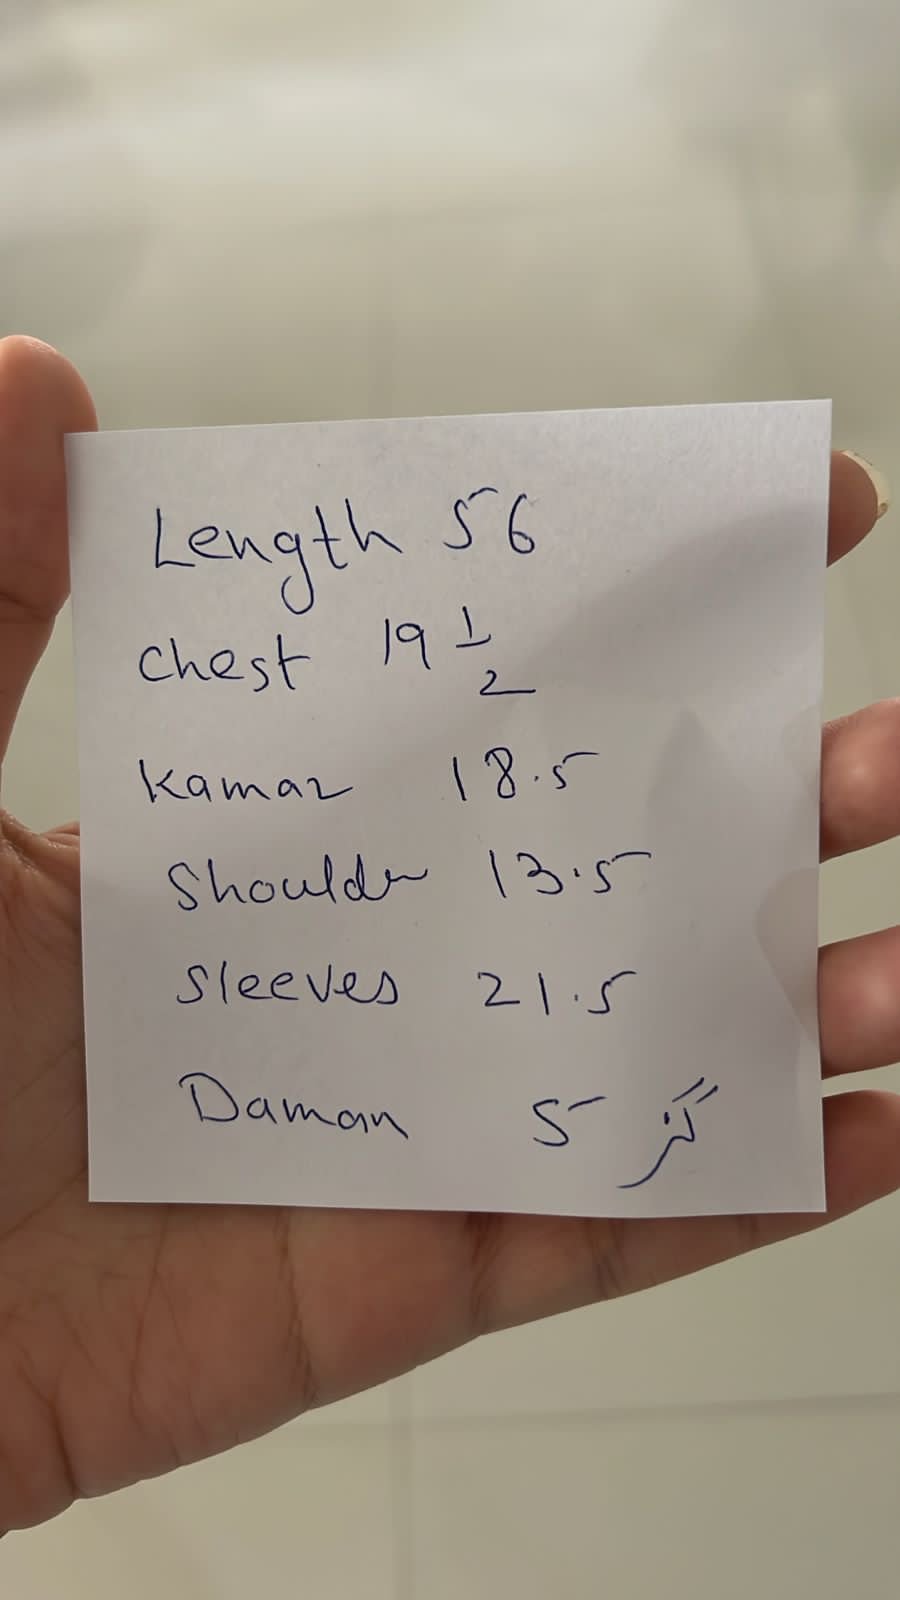 Length 56
Chest 19 1/2
Kamar 18.5
Shoulder 13.5
Sleeves 21.5
Daman 5 گز